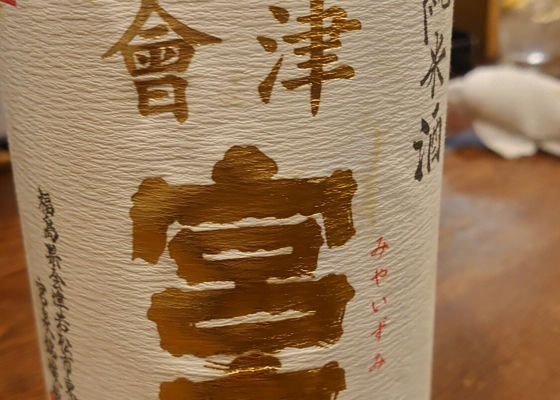 純米酒
會津
宮
みやいずみ
福島県会津若松市